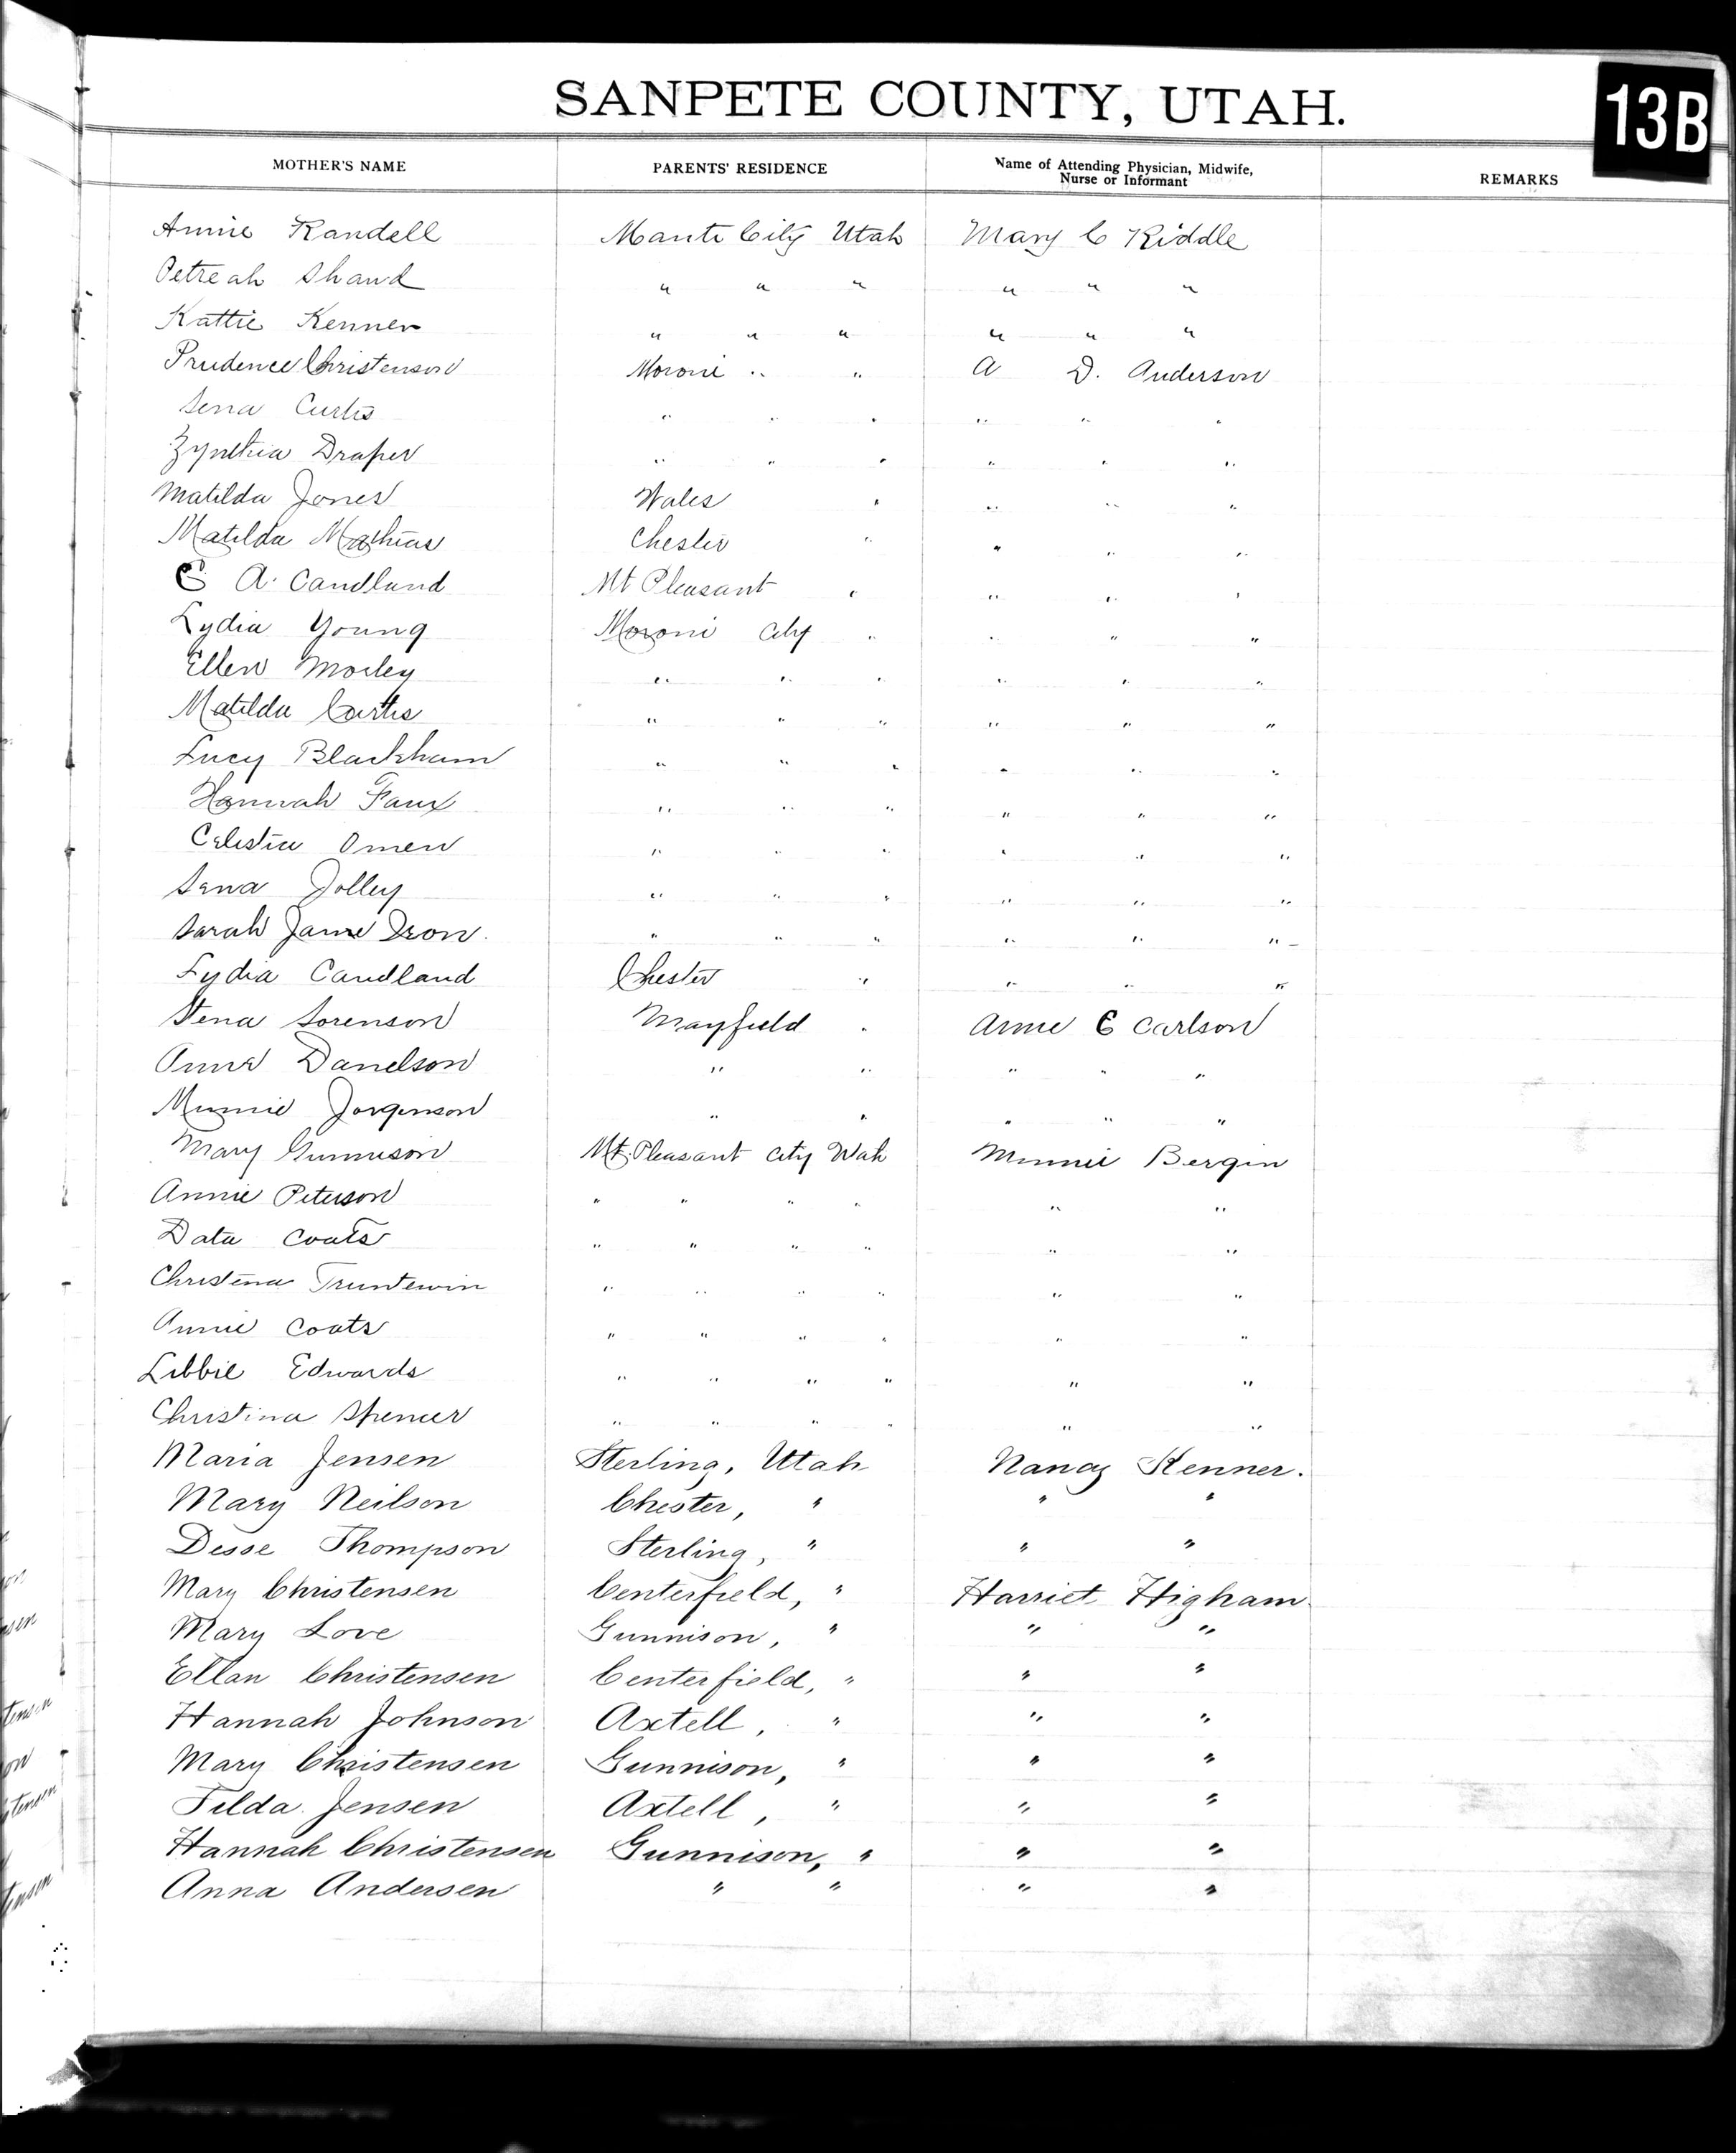 SANPETE COUNTY, UTAH.
13B
MOTHER'S NAME PARENTS' RESIDENCE Name of Attending Physician, Midwife, Nurse or Informant REMARKS
Annie Randell Manti City Utah Mary C Riddle
Petreah Shand " " " " " "
Kattie Kenner " " " " " "
Prudence Christenson Moroni " " A D. Anderson
Sena Curtis " " " " " "
Zynthia Draper " " " " " "
Matilda Jones Wales " " " "
Matilda Mathias Chester " " " "
C A. Candland Mt Pleasant " " " "
Lydia Young Moroni City " " " "
Ellen Morley " " " " " "
Matilda Curtis " " " " " "
Lucy Blackham " " " " " "
Hannah Faux " " " " " "
Celestia Omen " " " " " "
Sena Jolley " " " " " "
Sarah Jane " " " " " "
Lydia Candland Chester " " " "
Stena Sorenson Mayfield " Anne C Carlson
Anna Danelson " " " " "
Minnie Jorgenson " " " " "
Mary Gunnuson Mt. Pleasant City Utah Minnie Bergin
Annie Peterson " " " " " "
Data Coats " " " " " "
Christena Truntewin " " " " " "
Annie Coats " " " " " "
Libbie Edwards " " " " " "
Christina Spencer " " " " " "
Maria Jensen Sterling, Utah Nancy Kenner.
Mary Neilson Chester, " " "
Desse Thompson Sterling, " " "
Mary Christensen Centerfield, " Harriet Higham
Mary Love Gunnison, " " "
Ellan Christensen Centerfield, " " "
Hannah Johnson Axtell, " " "
Mary Christensen Gunnison, " " "
Tilda Jensen Axtell, " " "
Hannah Christensen Gunnison, " " "
Anna Andersen " " " "